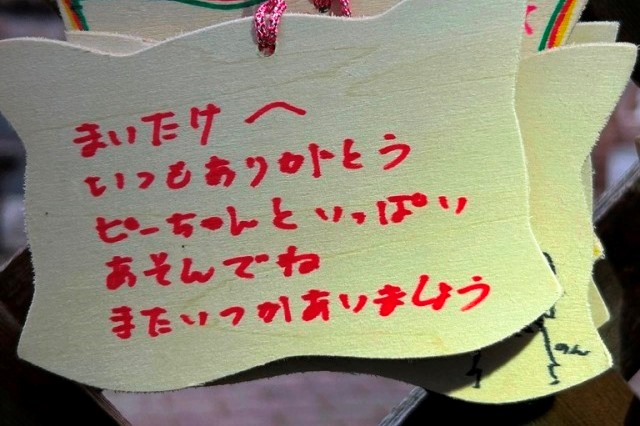 まいたけ へ
いつもありがとう
ピーちゃんといっぱい
あそんでね
またいつかあいましょう
のん